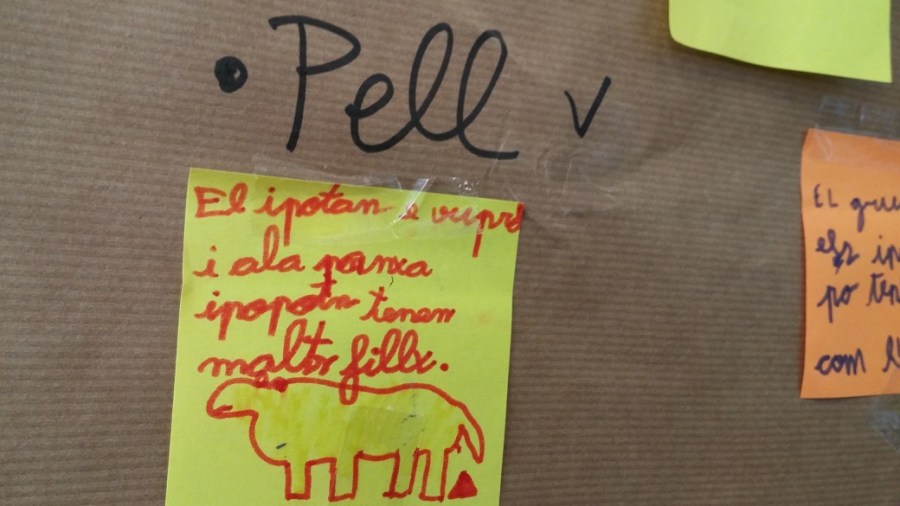 • Pell v
El ipotan
i ala panxa
ipopotn tenen
malts fills.
EL
els ip
po ten
com l'